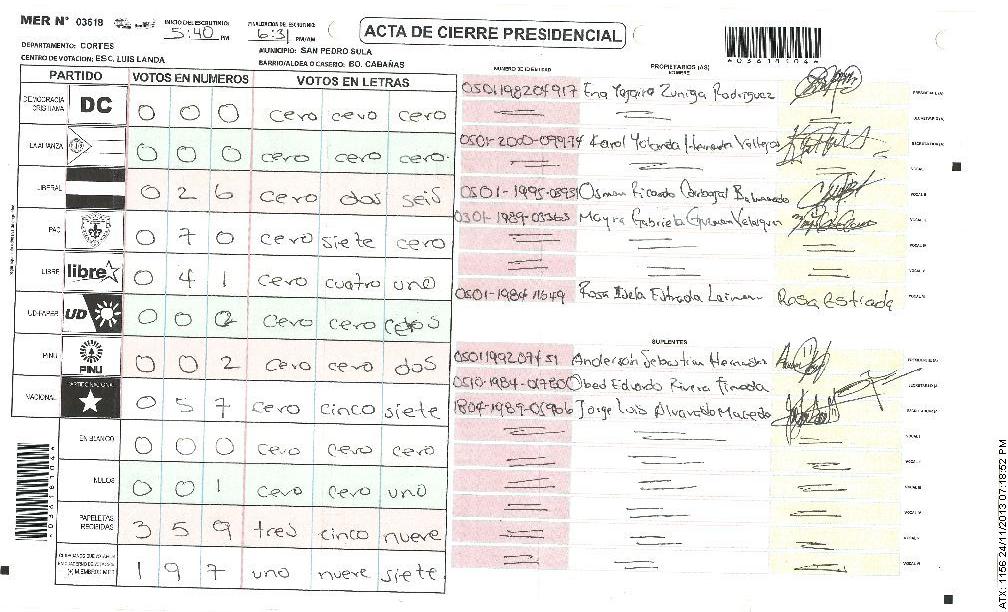 MER N° 03618
INICIO DEL ESCRUTINIO: 5:40 PM
FINALIZACION DEL ESCRUTINIO: 6:31 PM/AM
ACTA DE CIERRE PRESIDENCIAL
*03618104*
DEPARTAMENTO: CORTES
MUNICIPIO: SAN PEDRO SULA
CENTRO DE VOTACION: ESC. LUIS LANDA
BARRIO/ALDEA O CASERIO: BO. CABAÑAS
PARTIDO VOTOS EN NUMEROS VOTOS EN LETRAS
DEMOCRACIA CRISTIANA DC 0 0 0 cero cero cero
LA ALIANZA 0 0 0 cero cero cero.
LIBERAL 0 2 6 cero dos seis
PAC 0 7 0 cero siete cero
LIBRE libre 0 4 1 cero cuatro uno
UD-FAPER UD 0 0 cero cero
PINU PINU 0 0 2 cero cero dos
NACIONAL 0 5 7 cero cinco siete
EN BLANCO 0 0 0 cero cero cero
NULOS 0 0 1 cero cero uno
PAPELETAS RECIBIDAS 3 5 9 tres cinco nueve
1 9 7 uno nueve siete
NUMERO DE IDENTIDAD PROPIETARIOS (AS) NOMBRE
0501198204917 Ena Yojaira Zuniga Rodriguez
0501-2000-09974 Karol Yolanda
0501-1995-08951 Osman Ricardo
0301-1989-03363 Mayra Gabriela Guzman
0501-1984 11649 Rosa Idela Estrada Rosa Estrada
SUPLENTES
0501199207451 Anderson Sebastian Hernandez
0510-1984-01780 Obed Eduardo Rivera Pineda
1804-1989-05906 Jorge Luis Alvarado Macedo
*03618104*
ATX: 1156 24/11/2013 07:18:52 PM